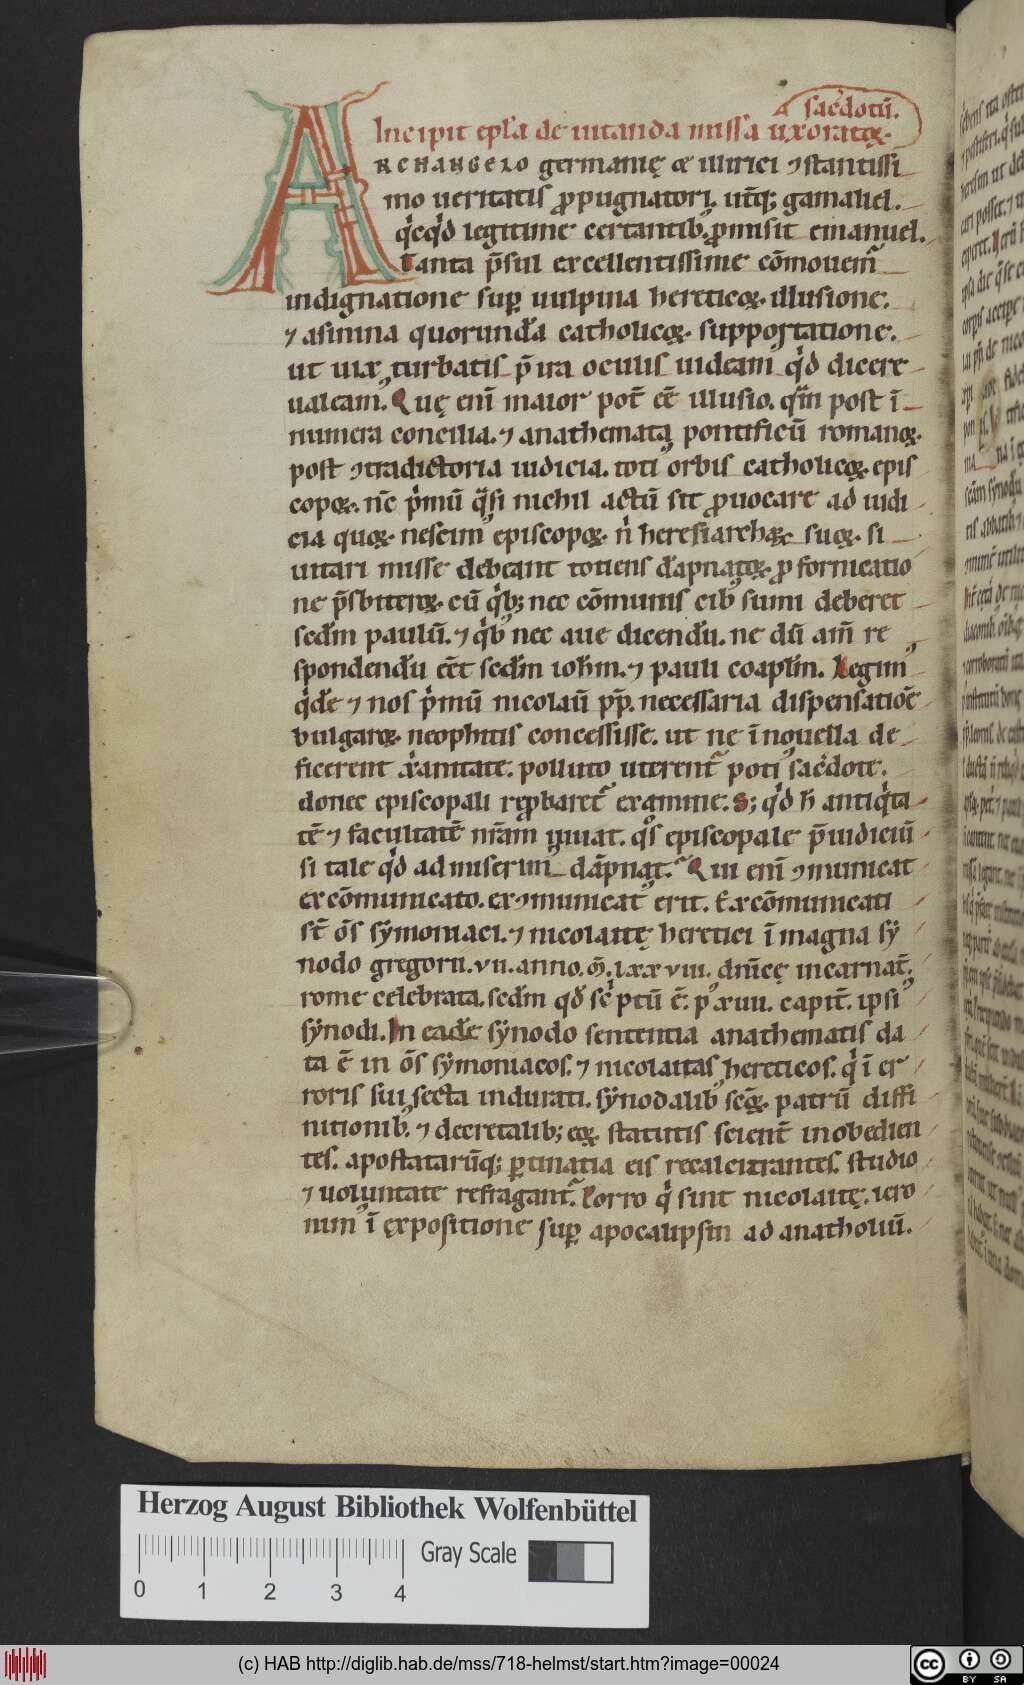 sac̄dotū.
Incipit epl̄a de uitanda missa uxoratoꝝ.
ARCHANGELO germanię & illirici ⁊stantissi
mo ueritatis ꝓpugnatori. utīq; gamaliel.
q̇cq̇d legitime certantib; ꝓmisit emanuel.
Tanta p̄sul excellentissime cōmouem̄
indignatione suꝑ uulpina hereticoꝝ. illusione.
⁊ asinina quorund̄a catholicoꝝ. supportatione.
ut uix turbatis p̄ ira oculis uideam q̇d dicere
ualeam. Quę eni maior pot̄ eē illusio. qm̄ post ī
numera concilia. ⁊ anathemata pontificū romanoꝝ.
post ⁊tradictoria iudicia. toti᾽ orbis catholicoꝝ. epis
copoꝝ. nc̄ ṗmū q̄si nichil actū sit ꝓuocare ad iudi
cia quoꝝ. nescim᾽ episcopoꝝ. n̄ heresiarchaꝝ suoꝝ. si
uitari misse debeant totiens d̄apnatoꝝ. ꝓ fornicatio
ne p̄sbiteroꝝ. cū q̇b; nec cōmunis cib᾽ sumi deberet
sed̄m paulū. ⁊ q̇b᾽ nec aue dicend̄u. ne dū am̄ re
spondend̄u eēt sed̄m ioh̄m. ⁊ pauli coapl̄m. Legim᾽
q̇de ⁊ nos ṗmū nicolaū pp̄. necessaria dispensatiōe
bulgaroꝝ. neophitis concessisse. ut ne ī nouella de
ficerent xānitate. polluto uterent̄ poti᾽ sac̄dote.
donec episcopali reꝓbaret̄ examine. S; q̇d h̄ antiq̇ta
tē ⁊ facultatē nr̄am iuuat. q̇s episcopale p̄iudiciū
si tale q̇d admiserim᾽ d̄apnat. Qui eni ⁊municat
excōmunicato. ex⁊municat᾽ erit. Excōmunicati
st̄ ōs sẏmoniaci. ⁊ nicolaitę heretici ī magna sẏ
nodo gregorii. vii. anno. m̄. lxxviii. dn̄icę incarnat̄.
rome celebrata. sed̄m qd̄ sc̄ptū ē. p᾽ xuii. capit̄. ipsi᾽
sẏnodi. In ead̄e sẏnodo sententia anathematis da
ta ē in ōs sẏmoniacos. ⁊ nicolaitas hereticos. q̇ ī er
roris sui secta indurati. sẏnodalib᾽ sc̄oꝝ. patrū diffi
nitionib᾽. ⁊ decretalib; eoꝝ. statutis scient̄ inobedien
tes. apostatarūq; ꝑtinatia eis recalcitrantes. studio
⁊ uoluntate refragant̄. Porro q̇ sint nicolaitę. iero
nim᾽ ī expositione suꝑ apocalipsin ad anatholiū.
Herzog August Bibliothek Wolfenbüttel
Gray Scale
0 1 2 3 4
(c) HAB http://diglib.hab.de/mss/718-helmst/start.htm?image=00024
cc BY SA